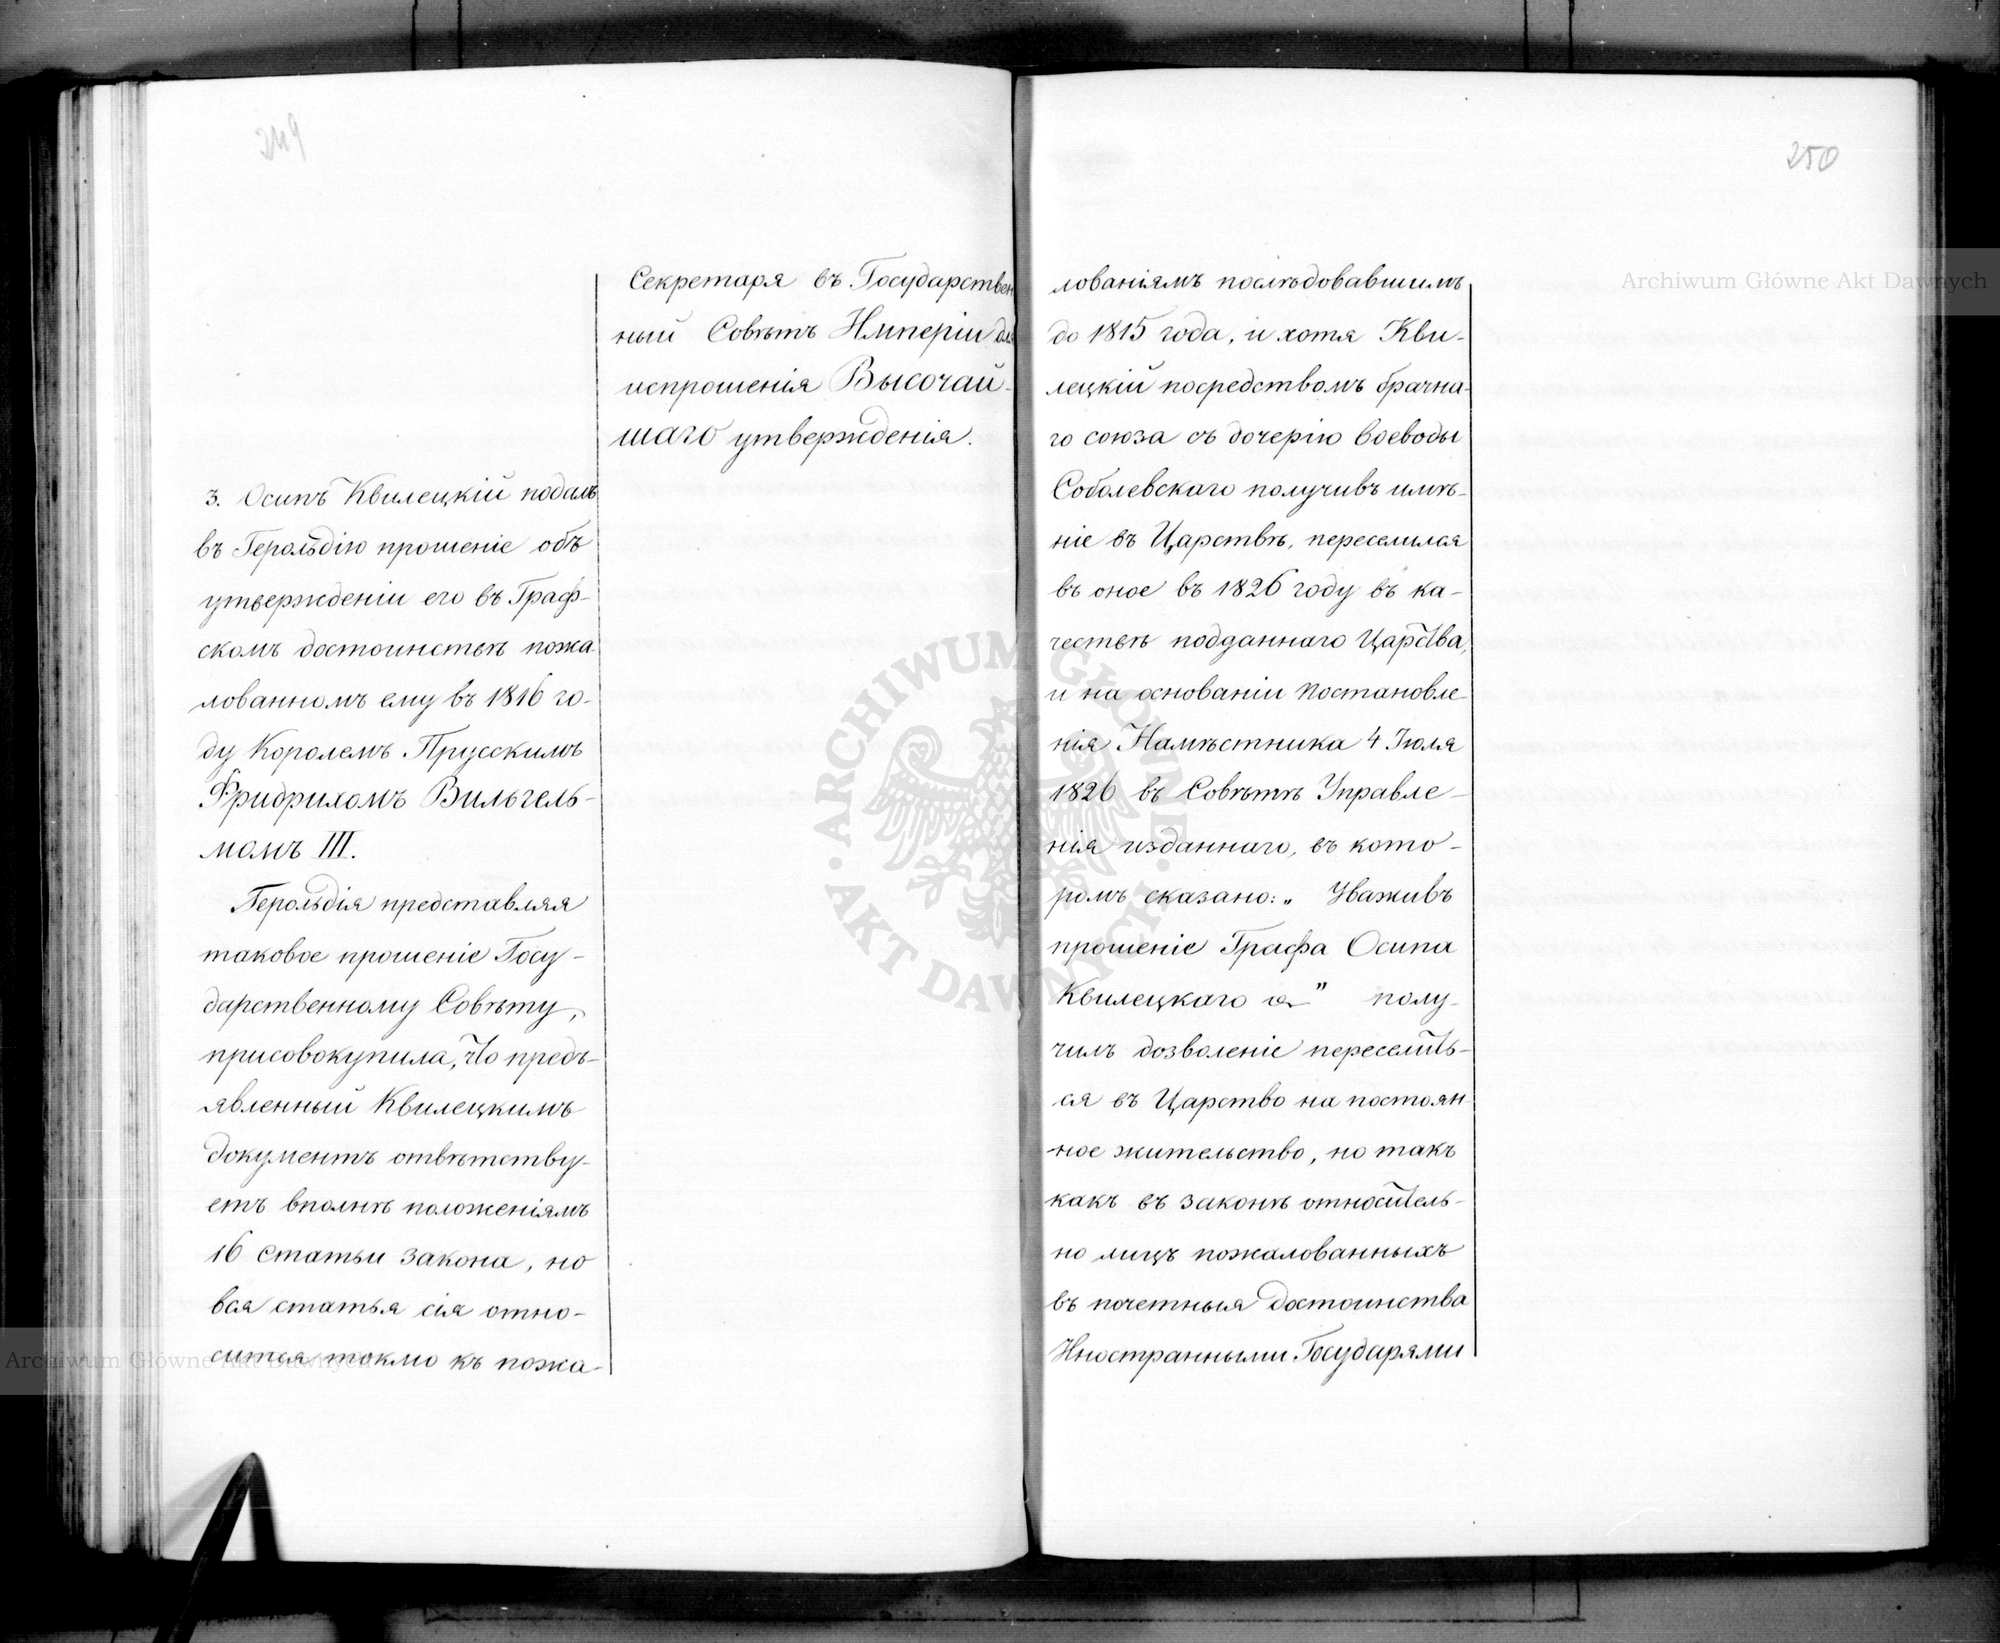 249
Секретаря въ Государствен
ный Совѣтъ Имперіи для
испрошенія Высочай-
шаго утвержденія.
3. Осипъ Квилецкій подалъ
въ Герольдію прошеніе объ
утвержденіи его въ Граф-
скомъ достоинствѣ пожа
лованномъ ему въ 1816 го-
ду Королемъ Прусскимъ
Фридрихомъ Вильгель-
момъ III.
Герольдія представляя
таковое прошеніе Госу-
дарственному Совѣту,
присовокупила, что предъ-
явленный Квилецкимъ
документъ отвѣтству-
етъ вполнѣ положеніямъ
16 статьи закона, но
вся статья сія отно-
сится токмо къ пожа-
250
лованіямъ послѣдовавшимъ
до 1815 года, и хотя Кви-
лецкій посредствомъ брачна-
го союза съ дочерію Воеводы
Соболевскаго получивъ имѣ-
ніе въ Царствѣ, переселился
въ оное въ 1826 году въ ка-
чествѣ подданнаго Царства,
и на основаніи постановле-
нія Намѣстника 4 Іюля
1826 въ Совѣтѣ Управле-
нія изданнаго, въ кото-
ромъ сказано: „ Уваживъ
прошеніе Графа Осипа
Квилецкаго " полу-
чилъ дозволеніе переселить-
ся въ Царство на постоян
ное жительство, но такъ
какъ въ законѣ относитель-
но лицъ пожалованныхъ
въ почетныя достоинства
Иностранными Государями
Archiwum Główne Akt Dawnych
Archiwum Główne Akt Dawnych
ARCHIWUM GŁÓWNE · AKT DAWNYCH ·